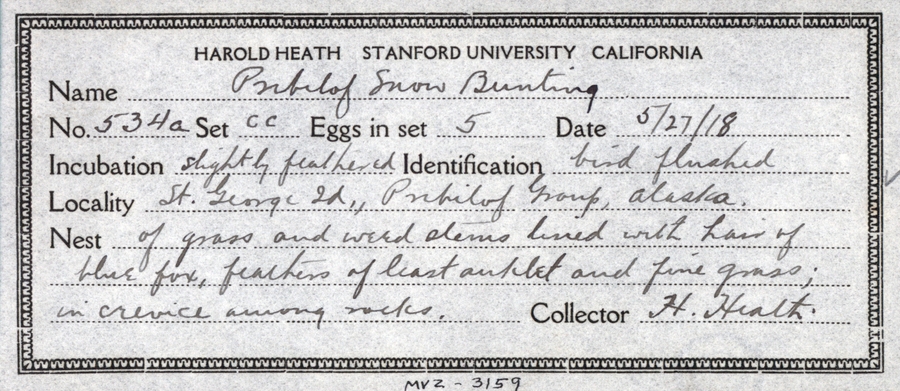 HAROLD HEATH STANFORD UNIVERSITY CALIFORNIA
Name Pribilof Snow Bunting
No. 534a Set cc Eggs in set 5 Date 5/27/18
Incubation slightly feathered Identification bird flushed
Locality St. George Id., Pribilof Group, Alaska.
Nest of grass and weed stems lined with hair of
blue fox, feathers of least auklet and fine grass;
in crevice among rocks. Collector H. Heath.
MVZ - 3159